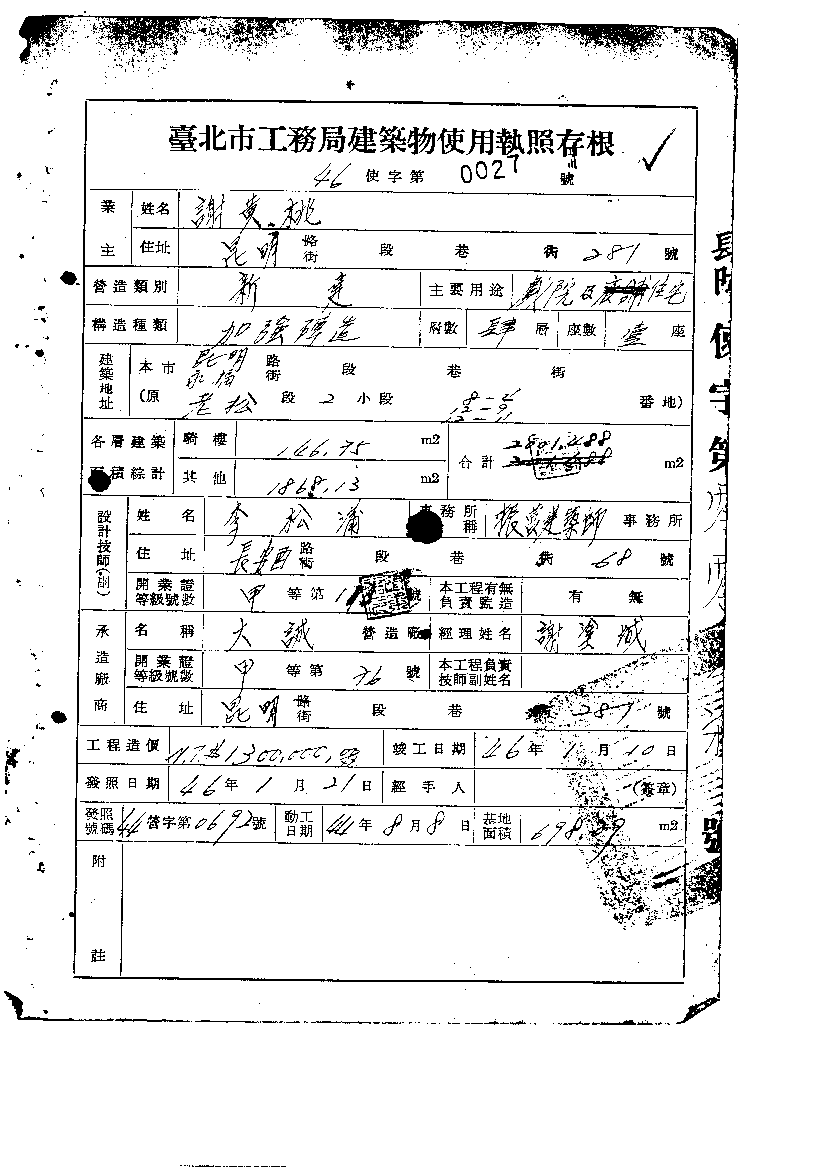 臺北市工務局建築物使用執照存根
46 使字第 0027 號
業主 姓名 謝黃桃
住址 昆明 路街 段 巷 街 281 號
營造類別 新建 主要用途 戲院及店舖住宅
構造種類 加強磚造 層數 肆 層 座數 壹 座
建築地址 本市 昆明 路街 段 巷 街
(原 老松 段 2 小段 番地)
各層建築面積綜計 騎樓 146.75 m2 合計 m2
其他 1868.13 m2
設計技師(副) 姓名 李松浦 事務所稱 振 建築師 事務所
住址 長安西 路街 段 巷 街 68 號
開業證等級號數 甲 等第 號 本工程有無負責監造 有 無
承造廠商 名稱 大誠 營造廠 經理姓名 謝
開業證等級號數 甲 等第 76 號 本工程負責技師副姓名
住址 昆明 路街 段 巷 街 281 號
工程造價 N.T.$1300,000,00 竣工日期 46 年 1 月 10 日
發照日期 46 年 1 月 21 日 經手人 (簽章)
發照號碼 44 營字第 0692 號 動工日期 44 年 8 月 8 日 基地面積 698.29 m2
附註
肆陸使字第
號